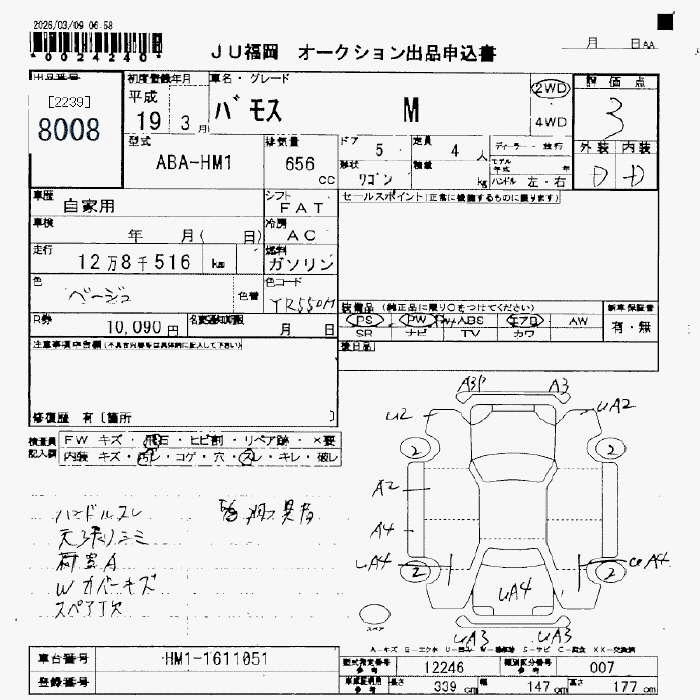 2026/03/09 06:58
*0024240*
JU福岡 オークション出品申込書
月 日AA
出品番号
[2239]
8008
初度登録年月
平成
19 3月
車名・グレード
バモス M
2WD
4WD
評価点
3
型式
ABA-HM1
排気量
656 cc
ドア 5
定員 4 人
形状 ワゴン
積載 kg
ディーラー・並行
モデル年式 年
ハンドル 左・右
外装 内装
D D
車歴
自家用
シフト
FAT
セールスポイント(正常に機能するものに限ります)
車検
年 月( 日)
冷房
AC
走行
12万8千516 km
燃料
ガソリン
色
ベージュ
色替
色コード
YR550M
装備品 (純正品に限り○をつけてください)
PS PW ABS エアロ AW
SR ナビ TV カワ
新車保証書
有・無
R券
10,090円
名変通知期限
月 日
後日品
注意事項申告欄(不具合内容等は具体的に記入して下さい)
修復歴 有〔箇所 〕
検査員記入欄
FW キズ・飛石・ヒビ割・リペア跡・×要
内装 キズ・汚レ・コゲ・穴・スレ・キレ・破レ
ハンドルスレ
天張りシミ
荷室A
Wカバーキズ
スペア欠
A3P A3
U2 UA2
2 2
A2
A4
UA4
2 2
UA4
UA3 UA3
スペア
A-キズ
車台番号 HM1-1611051
登録番号
型式指定番号 参考 12246 類別区分番号 参考 007
車庫証明用 参考 長さ 339 cm 幅 147 cm 高さ 177 cm